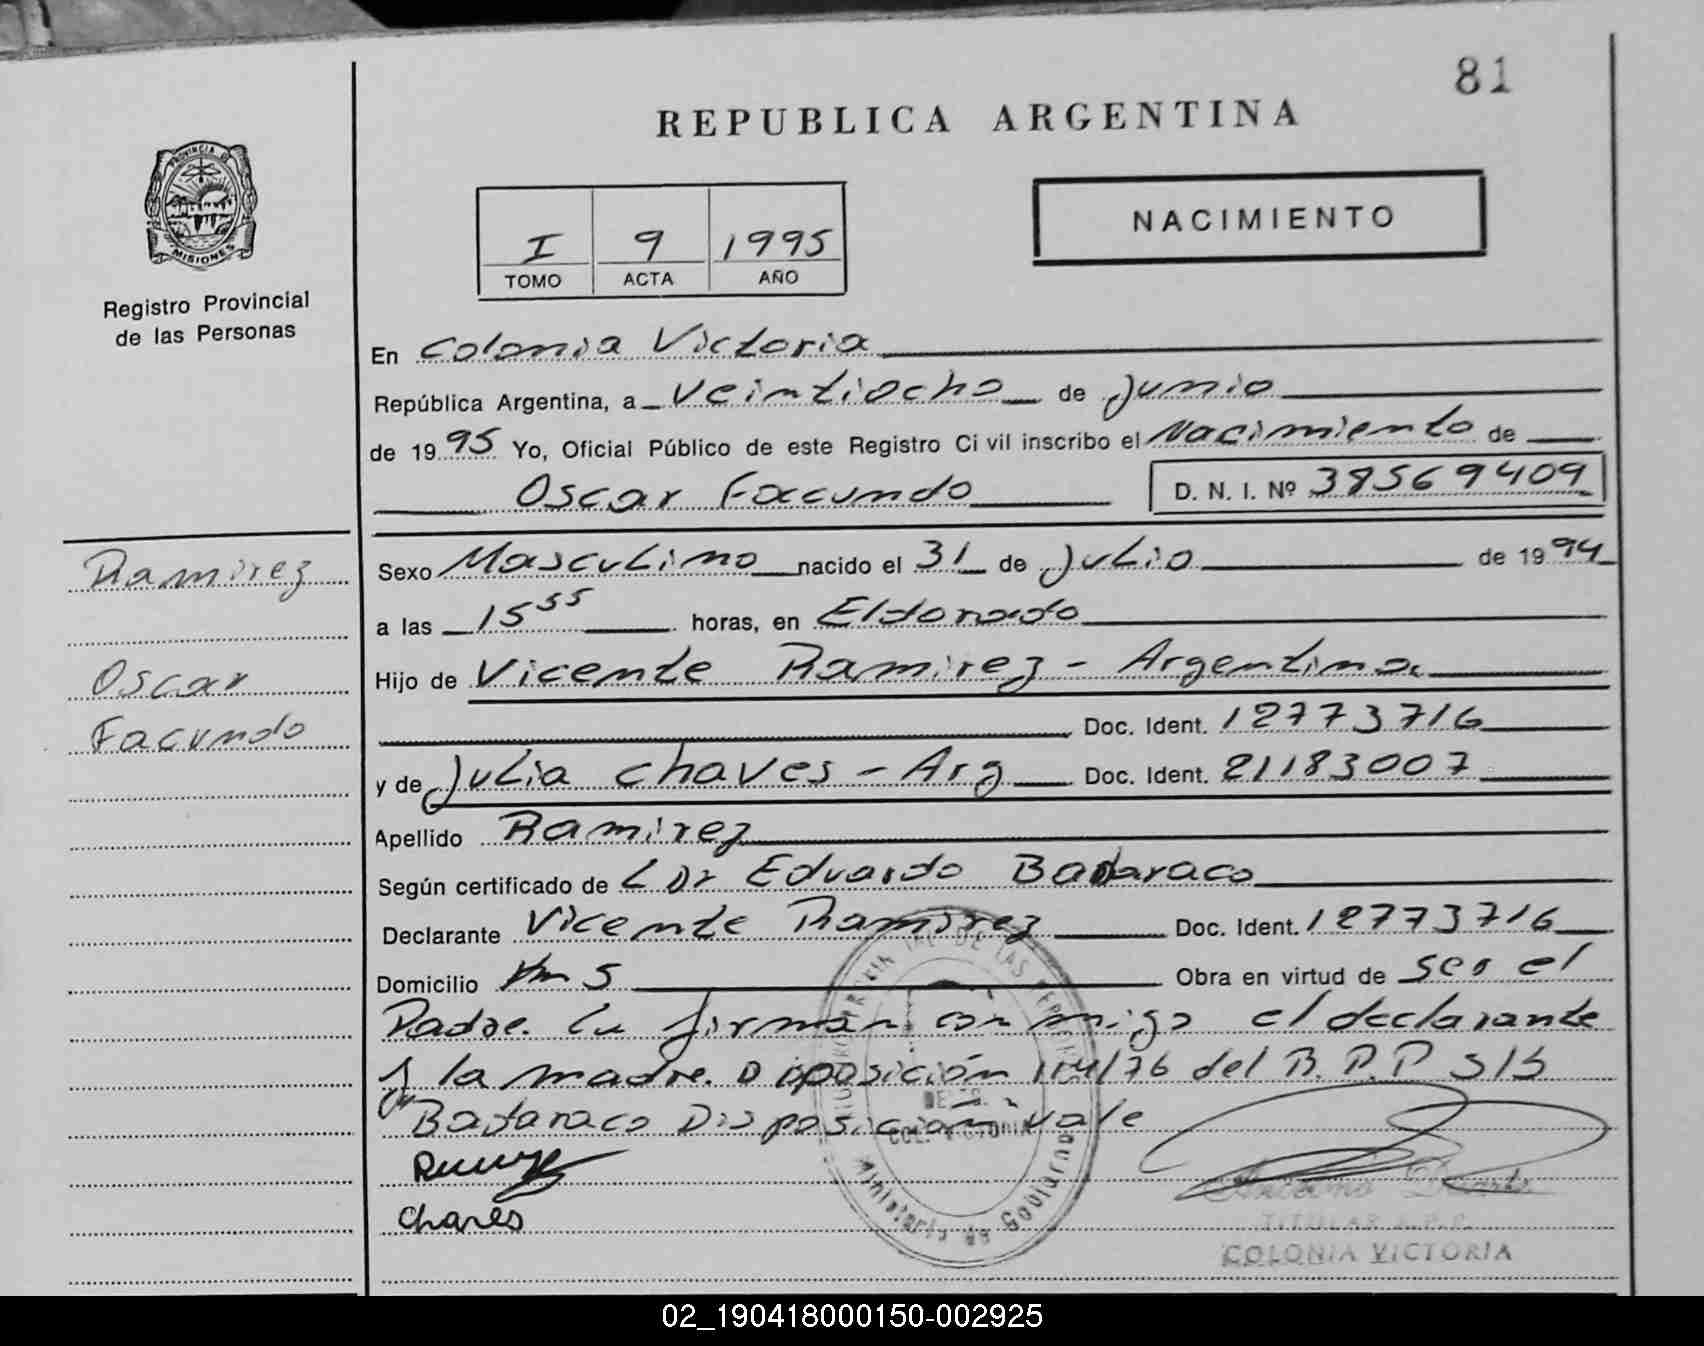 81
REPUBLICA ARGENTINA
PROVINCIA DE
MISIONES
Registro Provincial
de las Personas
I 9 1995
TOMO ACTA AÑO
NACIMIENTO
En Colonia Victoria
República Argentina, a Veintiocho de Junio
de 1995 Yo, Oficial Público de este Registro Civil inscribo el Nacimiento de
Oscar Facundo D. N. I. Nº 38569409
Ramirez
Oscar
Facundo
Sexo Masculino nacido el 31 de Julio de 1994
a las 15 55 horas, en Eldorado
Hijo de Vicente Ramirez - Argentina
Doc. Ident. 12773716
y de Julia Chaves - Arg Doc. Ident. 21183007
Apellido Ramirez
Según certificado de L Dr Eduardo Badaraco
Declarante Vicente Ramirez Doc. Ident. 12773716
Domicilio Km 5
Obra en virtud de ser el
Padre. Lu firman conmigo el declarante
y la madre. Disposición 114/76 del R.P.P S/S
Badaraco Disposición vale
Chaves
COL. VICTORIA
Ministerio de Gobierno
TITULAR R.P.P.
COLONIA VICTORIA
02_190418000150-002925